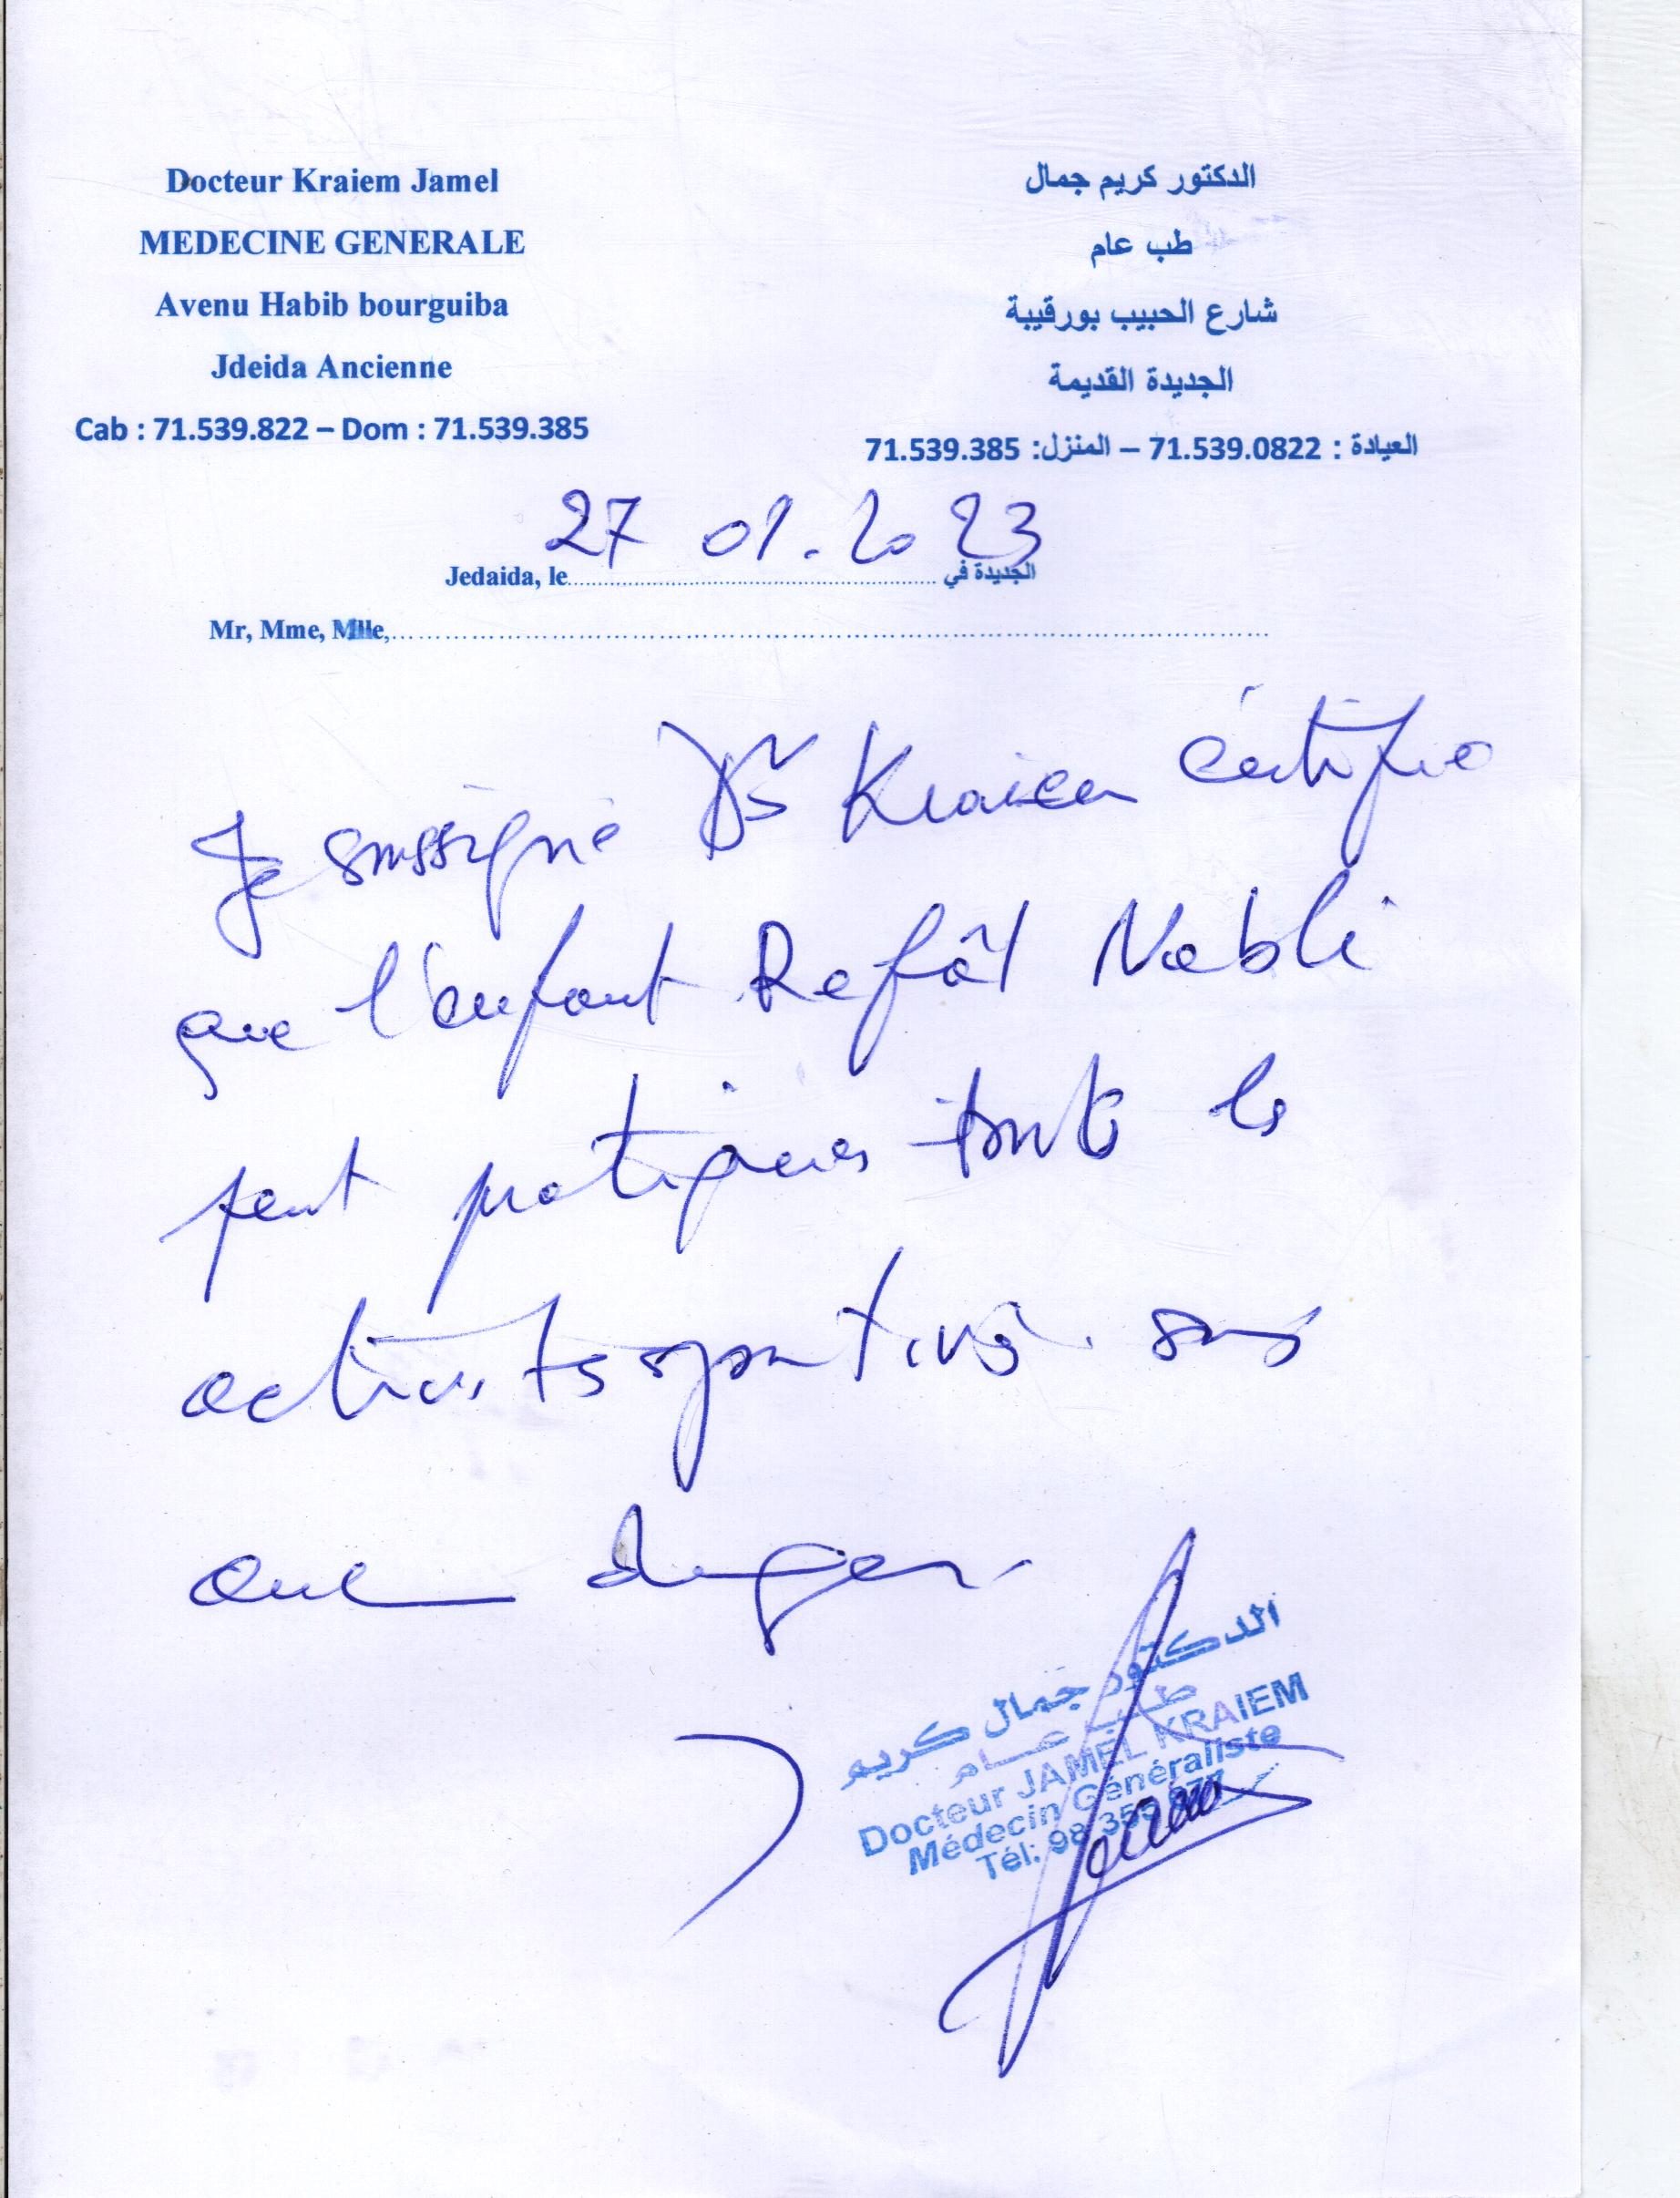 Docteur Kraiem Jamel
MEDECINE GENERALE
Avenu Habib bourguiba
Jdeida Ancienne
Cab : 71.539.822 – Dom : 71.539.385
الدكتور كريم جمال
طب عام
شارع الحبيب بورقيبة
الجديدة القديمة
العيادة : 71.539.0822 – المنزل: 71.539.385
27 01.2023
Jedaida, le الجديدة في
Mr, Mme, Mlle,
Je soussigné Dr Kraiem certifie
que l'enfant Refât Nebli
peut pratiquer toute les
activités sportives sans
aucun danger
الدكتور جمال كريم
طب عام
Docteur JAMEL KRAIEM
Médecin Généraliste
Tél: 98 35